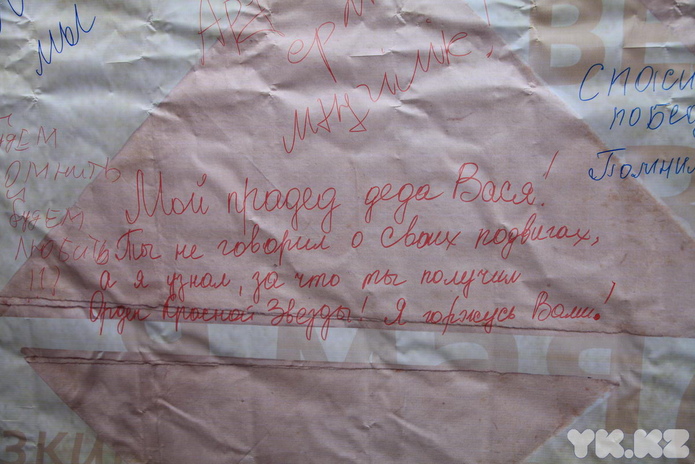 мы
ер
мәңгілік!
Спаси
побе
Помни
помнить
и
будем
любить
!!!
Мой прадед деда Вася!
Ты не говорил о своих подвигах,
а я узнал, за что ты получил
Орден Красной Звезды! Я горжусь Вами!
ЗКИ
YK.KZ